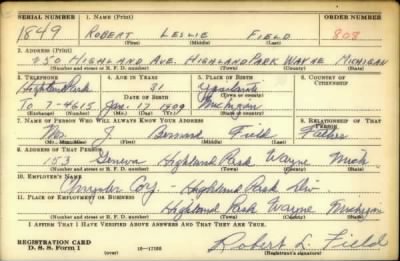 SERIAL NUMBER 1. NAME (Print) ORDER NUMBER
1849 ROBERT LESLIE FIELD 808
(First) (Middle) (Last)
2. ADDRESS (Print)
250 HIGHLAND AVE. HIGHLAND PARK WAYNE MICHIGAN
(Number and street or R. F. D. number) (Town) (County) (State)
3. TELEPHONE 4. AGE IN YEARS 5. PLACE OF BIRTH 6. COUNTRY OF CITIZENSHIP
Highland Park 31 Ypsilanti
DATE OF BIRTH (Town or county)
To 7-4615 Jan. 17 1909 Michigan
(Exchange) (Number) (Mo.) (Day) (Yr.) (State or country)
7. NAME OF PERSON WHO WILL ALWAYS KNOW YOUR ADDRESS 8. RELATIONSHIP OF THAT PERSON
Mr. J. Bernard Field Father
(Mr., Mrs., Miss) (First) (Middle) (Last)
9. ADDRESS OF THAT PERSON
153 Geneva Highland Park Wayne Mich
(Number and street or R. F. D. number) (Town) (County) (State)
10. EMPLOYER'S NAME
Chrysler Corp. - Highland Park Div
11. PLACE OF EMPLOYMENT OR BUSINESS
Highland Park Wayne Michigan
(Number and street or R. F. D. number) (Town) (County) (State)
I AFFIRM THAT I HAVE VERIFIED ABOVE ANSWERS AND THAT THEY ARE TRUE.
REGISTRATION CARD
D. S. S. Form 1 (over) 16-17105 Robert L. Field
(Registrant's signature)